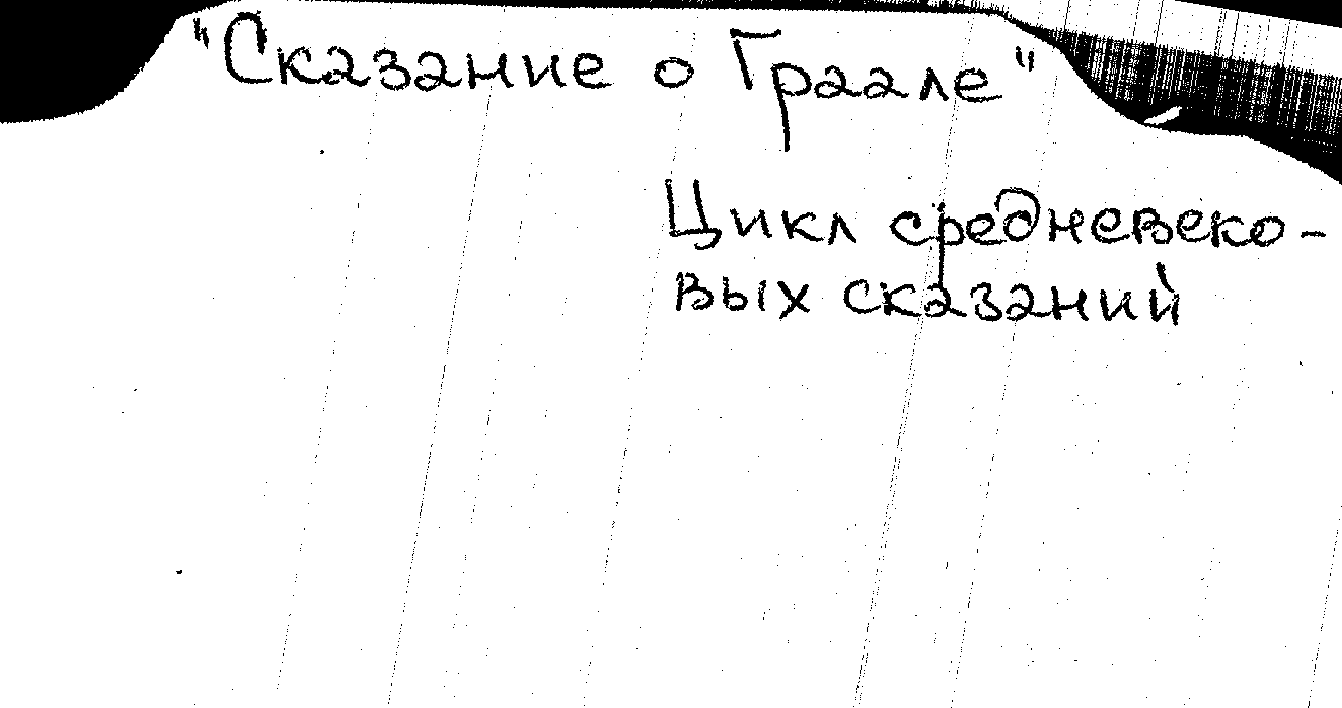 "Сказание о Граале"
Цикл средневеко-
вых сказаний